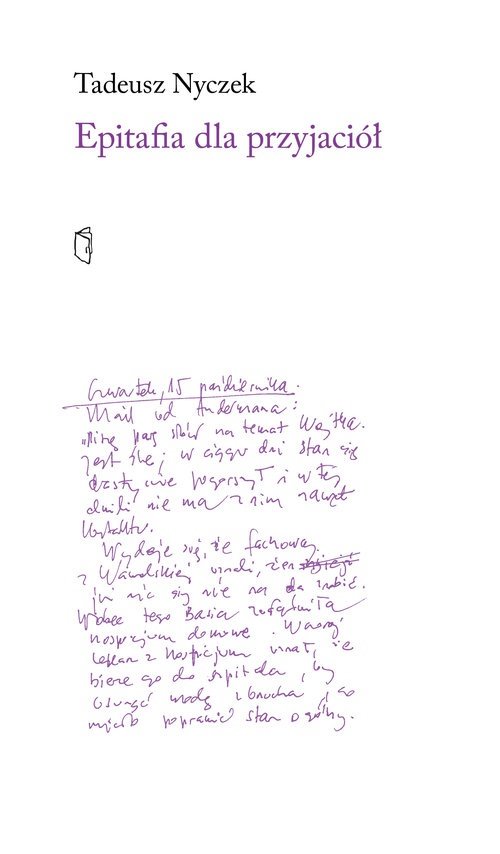 Tadeusz Nyczek
Epitafia dla przyjaciół
Czwartek, 15 października.
Mail od Andermana:
„Piszę parę słów na temat Wojtka.
Jest źle; w ciągu dni stan się
drastycznie pogorszył i w tej
chwili nie ma z nim nawet
kontaktu.
Wydaje się, że fachowcy
z Wawelskiej uznali, że
już nic się nie na da zrobić.
Wobec tego Basia załatwiła
hospicjum domowe. Wczoraj
lekarz z hospicjum uznał, że
bierze go do szpitala, by
usunąć wodę z brzucha, co
miało poprawić stan ogólny.